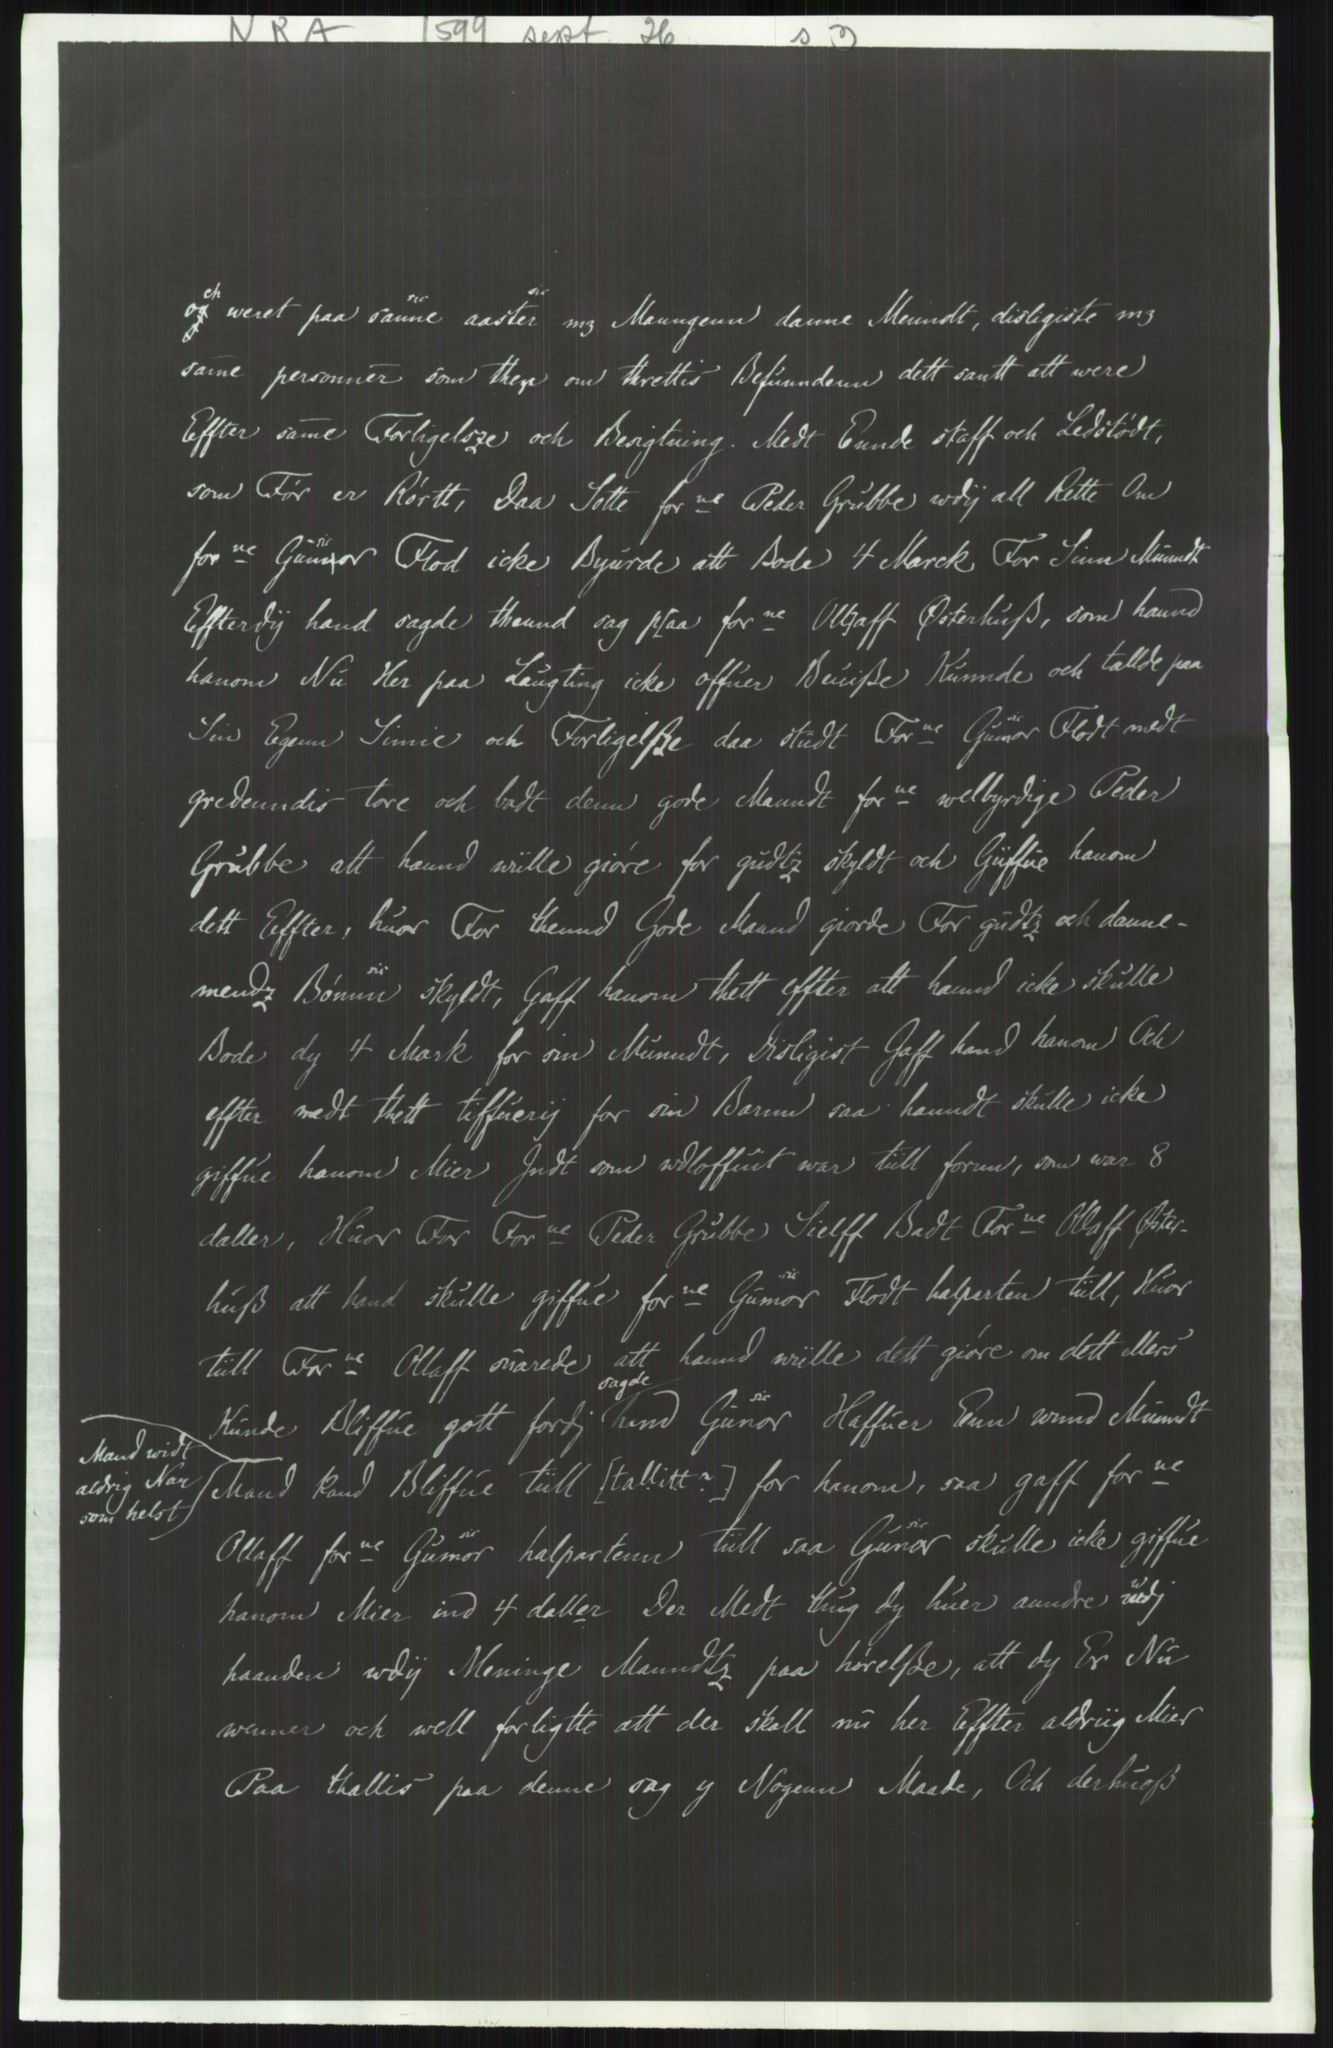 NRA 1599 sept 26 s 3
och weret paa sanne aaster mz Manngenn danne Menndt, disligiste mz
same personner som ther om threttis Befunndenn dett santt att were
Effter same Forligelsze och Besigtning. Medt Ennde skaff och Ledstødt,
som Før er Rørtt, Daa Sotte forne Peder Grubbe wdij all Rette Om
forne Gunnor Flod icke Byurde att Bode 4 Marck For Sinn Munndt
Effterdij hand sagde thennd sag paa forne Ollaff Østerhuß, som hannd
hanom Nu Her paa Laugting icke offuer Beuiße Kunnde och tallde paa
Sin Egenn Sinnie och Forligelße daa studt Forne Gumor Flodt medt
gredenndis tore och badt denn gode Manndt forne welbyrdige Peder
Grubbe att hannd wille giøre for gudtz skyldt och Giffue hanom
dett Effter, huor For thennd Gode Mannd giorde For gudtz och danne-
mendz Bønnn sic skyldt, Gaff hanom thett effter att hannd icke skulle
Bode dy 4 Mark for sin Munndt, Disligist Gaff hand hanom Och
effter medt thett tiffuerij for sin Barnn saa hanndt skulle icke
giffue hanom Mier Jndt som wdloffuit war till fornn, som war 8
daller, Huor For Forne Peder Grubbe Sielff Badt Forne Ollaff Øster-
huß att hand skulle giffue forne Gumor sic Flodt halparten till, Huor
till Forne Ollaff suarede att hannd wille dett giøre om dett Mers
Kunde Bliffue gott fordj sagde hand Gunor sic Haffuer Enn wund Munndt
Mand widt
aldrig Nar
som helst
Mand kand Bliffue till [tallitt ?] for hanom, saa gaff forne
Ollaff forne Gumor sic halpartenn till saa Gunor sic skulle icke giffue
hanom Mier ind 4 daller Der Medt thug dy huer anndre wdj
haanden wdij Meninge Manndtz paa hørelße, att dy Er Nu
wenner och well forligtte att der skall nu her Effter aldriig Mier
Paa thallis paa denne sag y Nogenn Maade, Och derhuoß